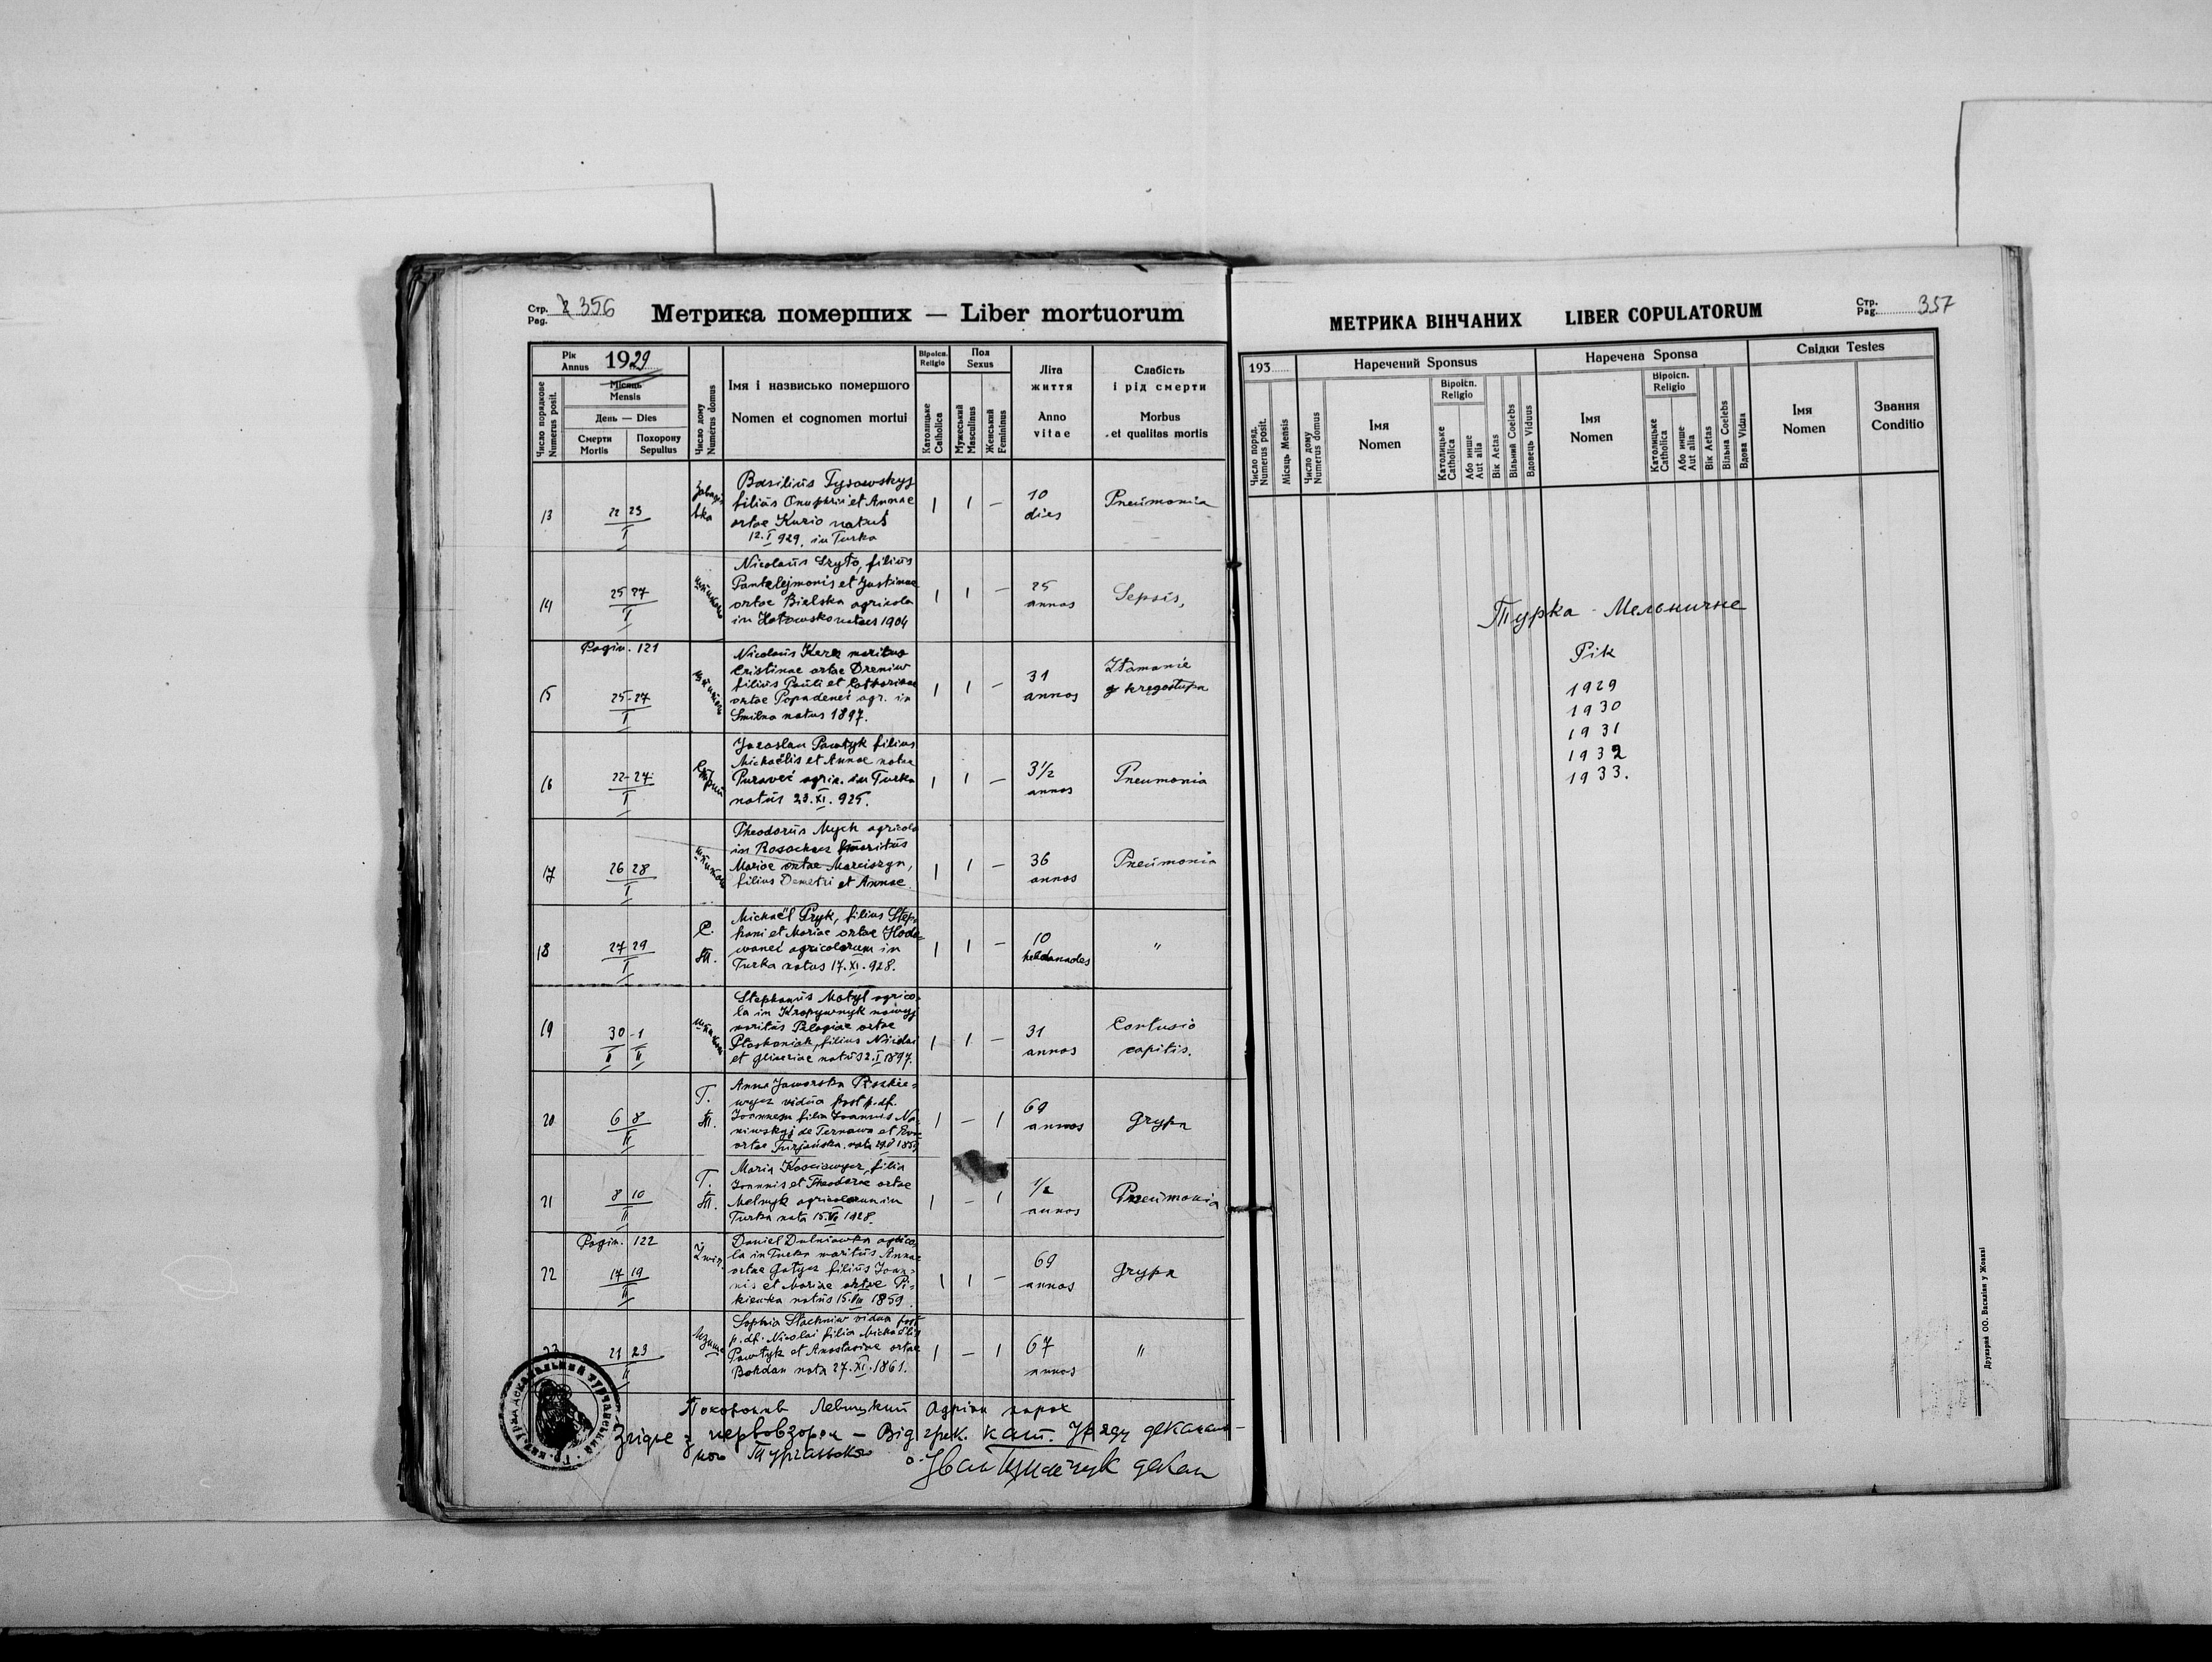 Стр. Pag. 356
Метрика померших — Liber mortuorum
Рік Annus 1929
Число порядкове Numerus posit.
Місяць Mensis
День — Dies
Смерти Mortis
Похорону Sepultus
Число дому Numerus domus
Імя і назвисько помершого
Nomen et cognomen mortui
Віроісп. Religio
Католицьке Catholica
Пол Sexus
Мужеський Masculinus
Женський Femininus
Літа життя
Anno vitae
Слабість і рід смерти
Morbus et qualitas mortis
13
22 23
I
Basilius Tysowskyj
filius Onuphrii et Annae
ortae Kurio natus
12.I 929. in Turka
1 1 —
10
dies
Pneumonia
14
25 27
I
Nicolaus Szyto, filius
Pantelejmonis et Justinae
ortae Bielska agricola
in natus 1904
1 1 —
25
annos
Sepsis,
Pagin. 121
15
25-27
I
Nicolaus Kerez maritus
Cristinae ortae Dreniw
filius Pauli et Catharinae
ortae Popadeneć agr. in
Smilna natus 1897.
1 1 —
31
annos
Złamanie
kręgosłupa
16
22-24
I
Jaroslau Pawłyk filius
Michaëlis et Annae natae
agric. in Turka
natus 23.XI.925.
1 1 —
3½
annos
Pneumonia
17
26 28
I
Theodorus Mych agricola
in Rosochacz maritus
Mariae ortae Marciszyn,
filius Demetri et Annae.
1 1 —
36
annos
Pneumonia
18
27 29
I
С.
Т.
Michaël Pryk, filius Step-
hani et Mariae ortae Hodo-
waneć agricolarum in
Turka natus 17.XI.928.
1 1 —
10
hebdomades
"
19
30-1
II II
Stephanus Motyl agrico-
la in Kropywnyk nowyj
maritus Pelagiae ortae
Ptoskoniak, filius Nicolai
et Gliceriae natus 2.I 1897.
1 1 —
31
annos
Contusio
capitis.
20
6 8
II
Г.
Т.
Anna Jaworska Proskie-
wycz vidua post p.df.
Joannem filia Joannis
de Ternawa et
ortae
1 — 1
69
annos
grypa
21
8 10
II
Г.
Т.
Maria Kosciewycz, filia
Joannis et Theodorae ortae
Melnyk agricolarum in
Turka nata 1928.
1 — 1
½
annos
Pneumonia
Pagin. 122
22
17 19
II
Daniel Dulniawka agrico-
la in Turka maritus Annae
ortae Gotycz filius Joan-
nis et Mariae ortae Pi-
kienka natus 15.VIII 1859.
1 1 —
69
annos
grypa
23
21 23
II
Sophia Stachniw vidua post
p.df. Nicolai filia Michaëlis
Pawłyk et Anastasiae ortae
Bohdan nata 27.XI.1861.
1 — 1
67
annos
"
Похоронив Левицкий Адріян парох
Згідне з первовзором — Від грек. кат. Уряду деканаль-
ного Турчанського
о. Іван декан
Стр. Pag. 357
МЕТРИКА ВІНЧАНИХ LIBER COPULATORUM
193
Число поряд. Numerus posit.
Місяць Mensis
Число дому Numerus domus
Наречений Sponsus
Імя Nomen
Віроісп. Religio
Католицьке Catholica
Або инше Aut alia
Вік Aetas
Вільний Coelebs
Вдовець Viduus
Наречена Sponsa
Імя Nomen
Віроісп. Religio
Католицьке Catholica
Або инше Aut alia
Вік Aetas
Вільна Coelebs
Вдова Vidua
Свідки Testes
Імя Nomen
Звання Conditio
Турка - Мельничне
Рік
1929
1930
1931
1932
1933.
Друкарня ОО. Василіян у Жовкві